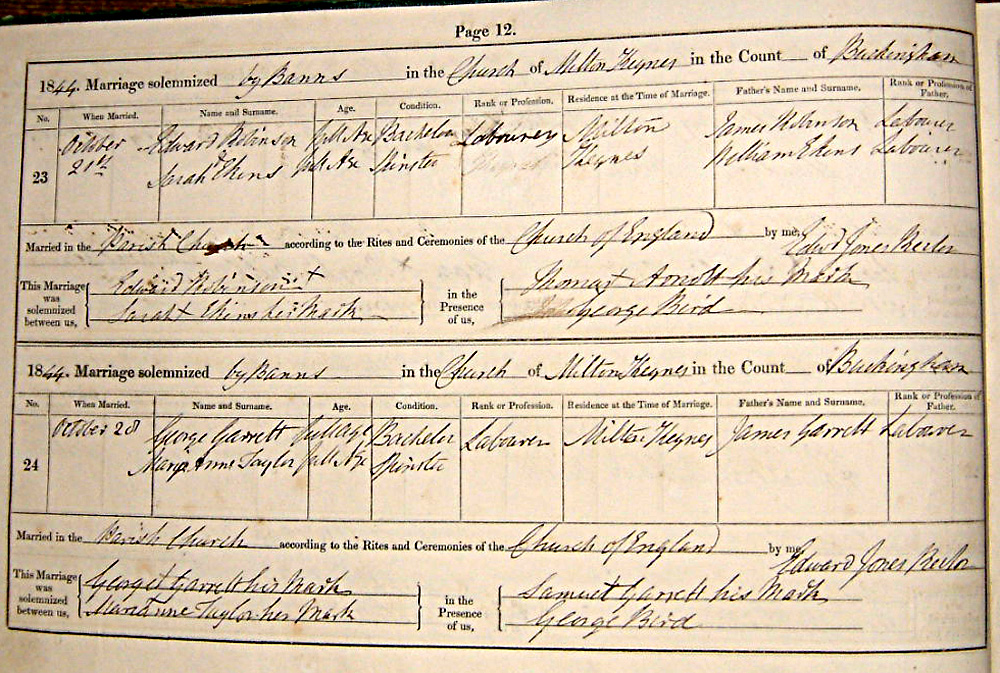 Page 12.
1844. Marriage solemnized by Banns in the Church of Milton Keynes in the Count of Buckingham
No. When Married. Name and Surname. Age. Condition. Rank or Profession. Residence at the Time of Marriage. Father's Name and Surname. Rank or Profession of Father.
23 October Edward Robinson full Age Bachelor Labourer Milton James Robinson Labourer
21st Sarah Ekins full Age Spinster Keynes William Ekins Labourer
Married in the Parish Church according to the Rites and Ceremonies of the Church of England by me, Edwd Jones Rector
This Marriage was solemnized between us, Edward Robinson + in the Presence of us, Thomas + Arnott his Mark
Sarah + Ekins her Mark George Bird
1844. Marriage solemnized by Banns in the Church of Milton Keynes in the Count of Buckingham
No. When Married. Name and Surname. Age. Condition. Rank or Profession. Residence at the Time of Marriage. Father's Name and Surname. Rank or Profession of Father.
24 October 28 George Garrett full age Bachelor Labourer Milton Keynes James Garrett Labourer
Anne Taylor full Age Spinster
Married in the Parish Church according to the Rites and Ceremonies of the Church of England by me, Edward Jones Rector
This Marriage was solemnized between us, George + Garrett his Mark in the Presence of us, Samuel Garrett his Mark
Marianne Taylor her Mark George Bird